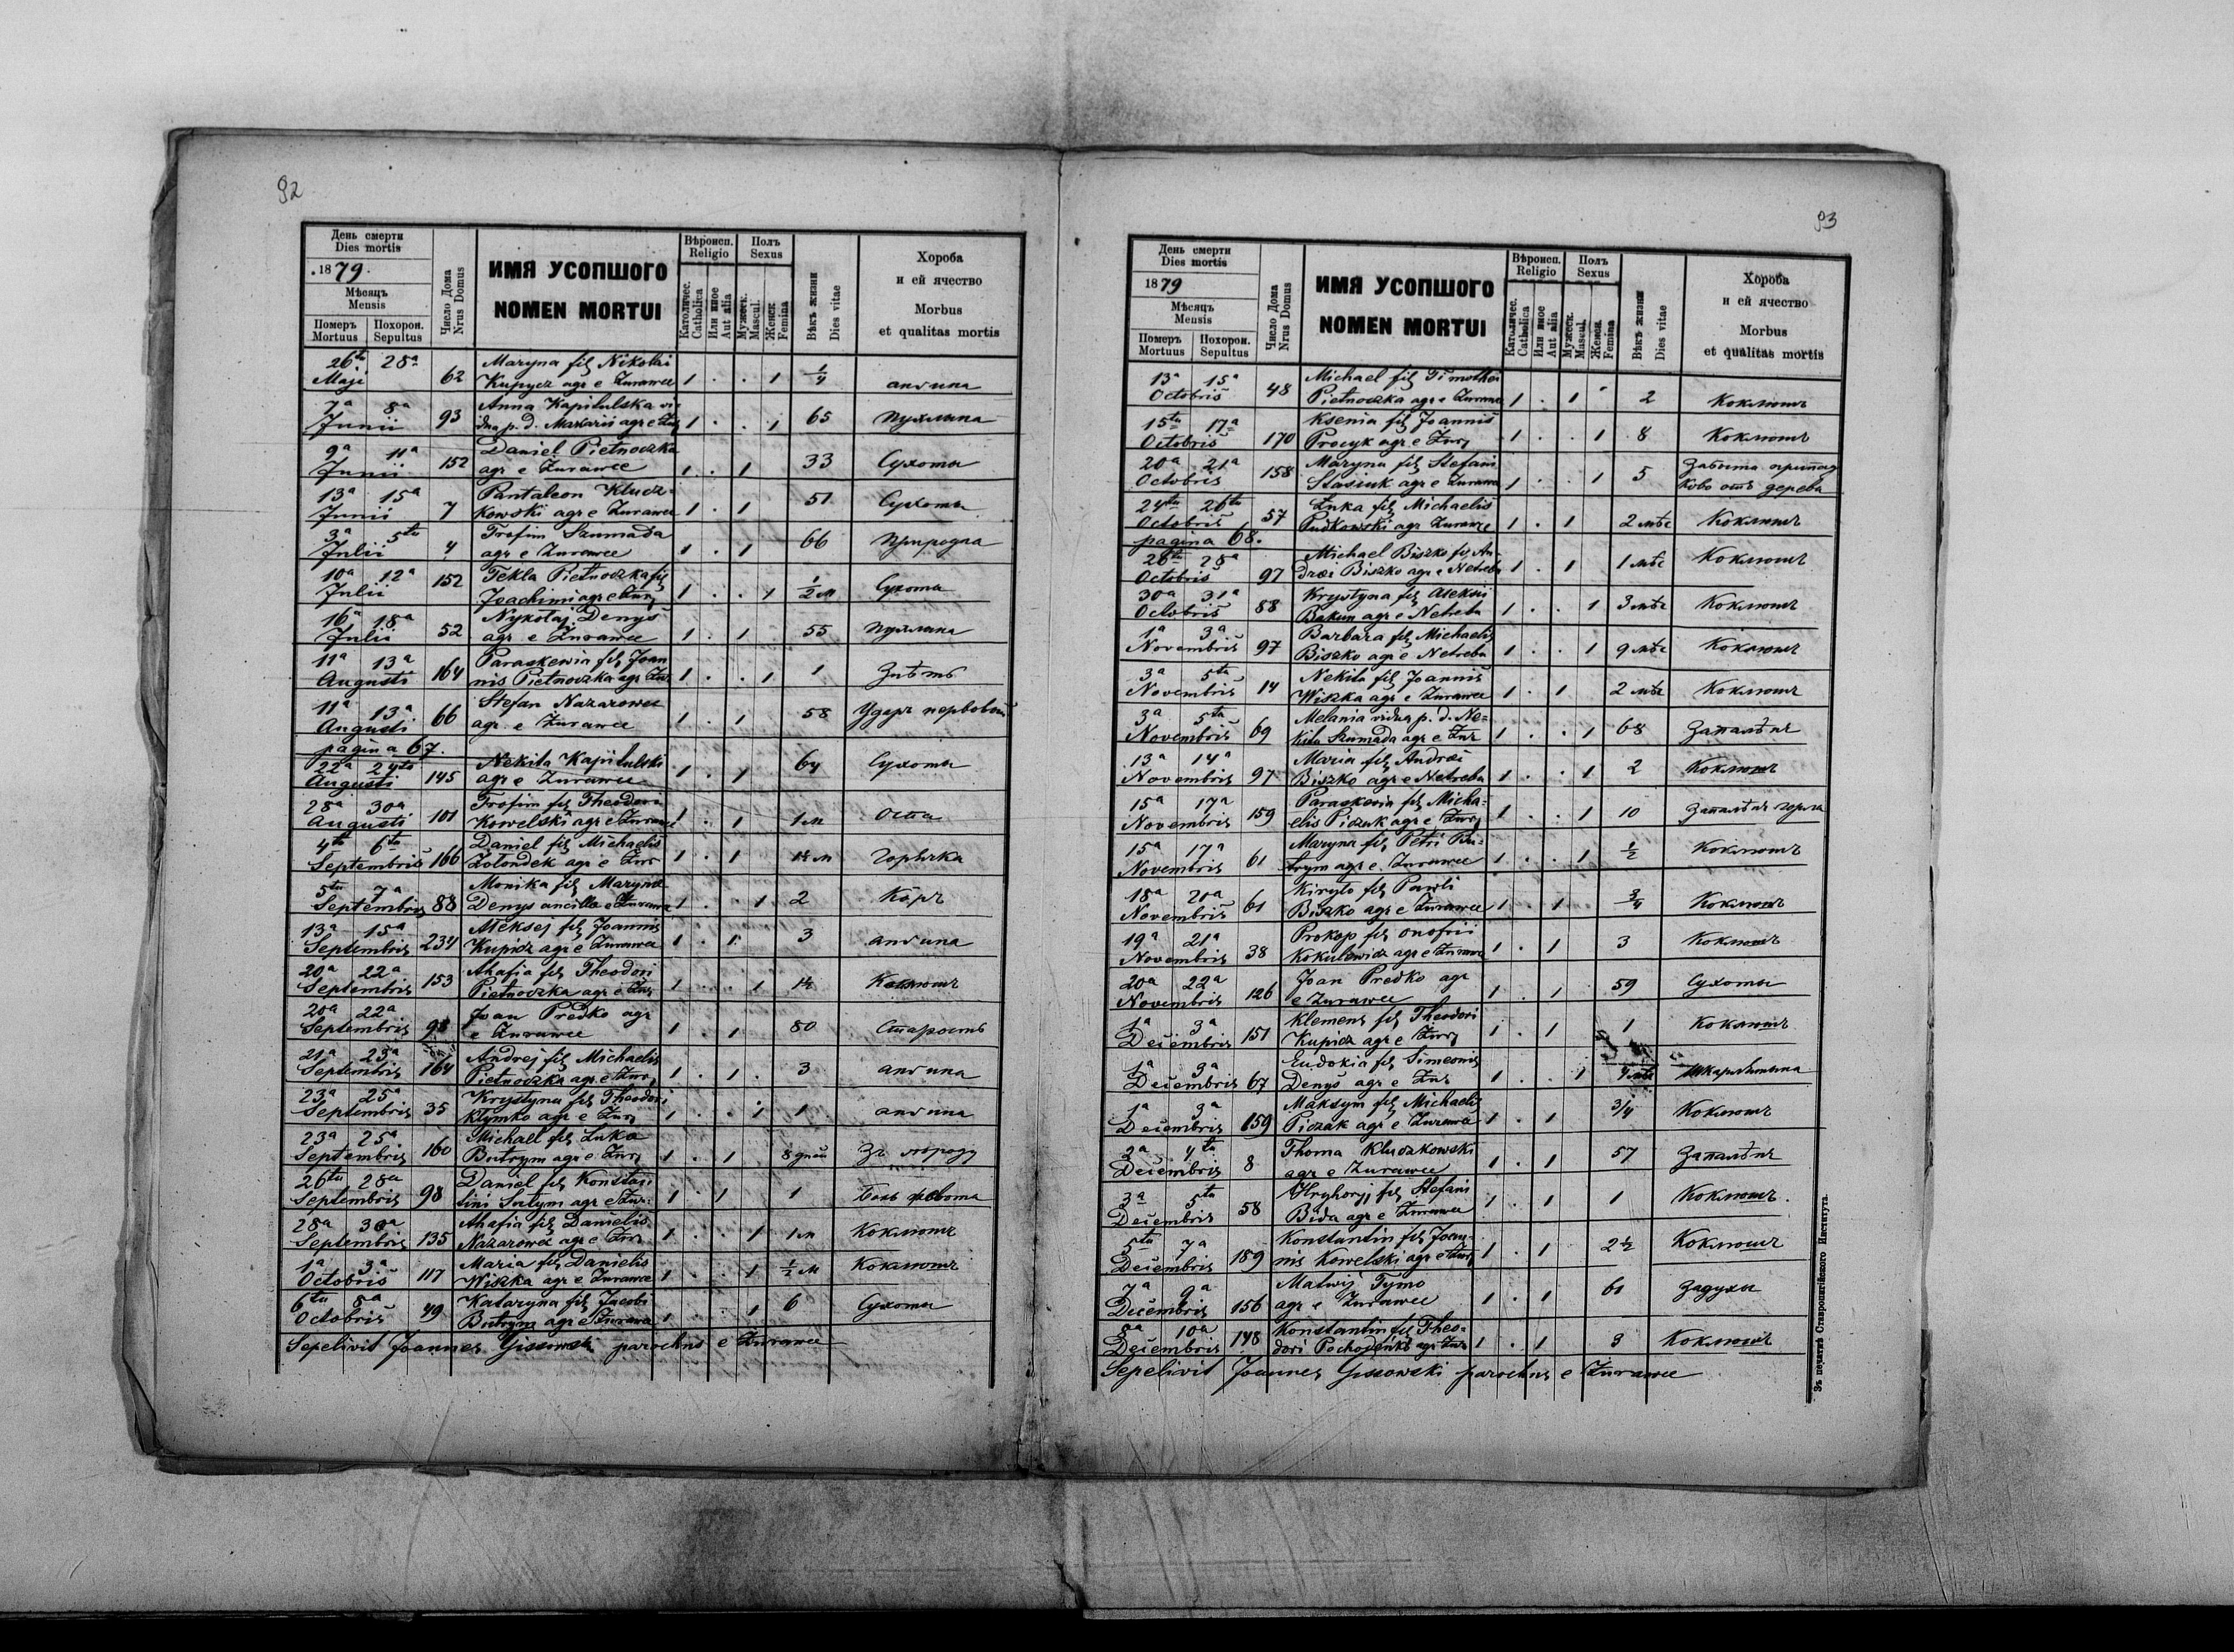 92
День смерти
Dies mortis
1879.
Мѣсяць
Mensis
Померъ Похорон.
Mortuus Sepultus
Число Дома
Nrus Domus
ИМЯ УСОПШОГО
NOMEN MORTUI
Вѣроисп.
Religio
Католичес.
Catholica
Или иное
Aut alia
Полъ
Sexus
Мужеск.
Mascul.
Женск.
Femina
Вѣкъ жизни
Dies vitae
Хороба
и ей ячество
Morbus
et qualitas mortis
26ta 28a Maryna fil. Nikolai
Maji 62 Kupycz agr e Żurawce 1 . . 1 1/4 ангина
7a 8a Anna Kapitulska vi-
Junii 93 dua p. d. Makarii agr e Żur. 1 . . 1 65 пухлина
9a 11a Daniel Pietnoczka
Junii 152 agr e Żurawce 1 . 1 33 Сухоты
13a 15a Pantaleon Klucz-
Junii 7 kowski agr e Żurawce 1 . 1 51 Сухоты
3a 5ta Trofim Szumada
Julii 4 agr e Żurawce 1 . 1 66 природна
10a 12a Tekla Pietnoczka fil.
Julii 152 Joachimi agr e Żur. 1 . . 1 1/2 м Сухоты
16a 18a Nykołaj Denys
Julii 52 agr e Żurawce 1 . 1 55 пухлина
11a 13a Paraskewia fil. Joan
Augusti 164 nis Pietnoczka agr Żur. 1 . . 1 1
11a 13a Stefan Nazarowec
Augusti 66 agr. e Żurawce 1 . 1 58 Ударъ нервовый
pagina 67.
22a 24ta Nekita Kapitulski
Augusti 145 agr e Żurawce 1 . 1 64 Сухоты
28a 30a Trofim fil. Theodori
Augusti 101 Kowelski agr e Żurawce 1 . 1 1 м оспа
4ta 6ta Daniel fil. Michaelis
Septembris 166 Żołondek agr e Żur 1 . 1 1½ м горячка
5ta 7a Monika fil. Maryna
Septembris 88 Denys ancilla e Żurawce 1 . . 1 2 Коръ
13a 15a Aleksej fil. Joannis
Septembris 234 Kupicz agr e Żurawce 1 . 1 3 ангина
20a 22a Ahafia fil. Theodori
Septembris 153 Pietnoczka agr e Żur. 1 . . 1 1½ Коклюшъ
20a 22a Joan Predko agr
Septembris 98 e Żurawce 1 . 1 80 Старость
21a 23a Andrej fil. Michaelis
Septembris 164 Pietnoczka agr. e Żur. 1 . 1 . 3 ангина
23a 25a Krystyna fil. Theodori
Septembris 35 Klymko agr e Żur. 1 . . 1 1 ангина
23a 25a Michael fil. Luka
Septembris 160 Butrym agr e Żur. 1 . 1 8 дней
26ta 28a Daniel fil. Konstan
Septembris 98 tini agr e Żur. 1 . 1 1 Боль живота
28a 30a Ahafia fil. Danielis
Septembris 135 Nazarowec agr e Żur. 1 . . 1 1 м Коклюшъ
1a 3a Maria fil. Danielis
Octobris 117 Wiszka agr e Żurawce 1 . . 1 1/2 м Коклюшъ
6ta 8a Kataryna fil. Jacobi
Octobris 49 Butrym agr e Żurawce 1 . . 1 6 Сухоты
Sepelivit Joannes Gissowski parochus e Żurawce
93
День смерти
Dies mortis
1879
Мѣсяць
Mensis
Померъ Похорон.
Mortuus Sepultus
Число Дома
Nrus Domus
ИМЯ УСОПШОГО
NOMEN MORTUI
Вѣроисп.
Religio
Католичес.
Catholica
Или иное
Aut alia
Полъ
Sexus
Мужеск.
Mascul.
Женск.
Femina
Вѣкъ жизни
Dies vitae
Хороба
и ей ячество
Morbus
et qualitas mortis
13a 15a Michael fil. Timothei
Octobris 48 Pietnoczka agr e Żurawce 1 . 1 2 Коклюшъ
15ta 17a Ksenia fil. Joannis
Octobris 170 Procyk agr e Żur. 1 . . 1 8 Коклюшъ
20a 21a Maryna fil. Stefani
Octobris 158 Stasiuk agr e Żurawce 1 . . 1 5 Забита припад
ково отъ дерева
24ta 26ta Łuka fil. Michaelis
Octobris 57 Pudkowski agr Żurawce 1 . 1 2 мѣс Коклюшъ
pagina 68.
26ta 28a Michael Biszko fil. An-
Octobris 97 drei Biszko agr e Netreba 1 . 1 1 мѣс Коклюшъ
30a 31a Krystyna fil. Aleksii
Octobris 88 Bakun agr e Netreba 1 . . 1 3 мѣс Коклюшъ
1a 3a Barbara fil. Michaelis
Novembris 97 Biszko agr e Netreba 1 . . 1 9 мѣс Коклюшъ
3a 5ta Nekita fil. Joannis
Novembris 14 Wiszka agr e Żurawce 1 . 1 2 мѣс Коклюшъ
3a 5ta Melania vidua p. d. Ne-
Novembris 69 kita Szumada agr e Żur 1 . . 1 68 Запалѣнє
13a 14a Maria fil. Andrei
Novembris 97 Biszko agr e Netreba 1 . . 1 2 Коклюшъ
15a 17a Paraskevia fil. Micha-
Novembris 159 elis Piczuk agr e Żur. 1 . . 1 10 Запалѣнє горла
15a 17a Maryna fil. Petri Bu-
Novembris 61 trym agr e. Żurawce 1 . . 1 1/2 Коклюшъ
18a 20a Kiryło fil. Pawli
Novembris 61 Biszko agr e Żurawce 1 . 1 3/4 Коклюшъ
19a 21a Prokop fil. Onofrii
Novembris 38 Kokulewicz agr e Żurawce 1 . 1 3 Коклюшъ
20a 22a Joan Predko agr
Novembris 126 e Żurawce 1 . 1 59 Сухоты
1a 3a Klemens fil. Theodori
Decembris 151 Kupicz agr e Żur. 1 . 1 1 Коклюшъ
1a 3a Eudokia fil. Simeonis
Decembris 67 Denys agr e Żur 1 . . 1 4 мѣс Шкарлятина
1a 3a Maksym fil. Michaelis
Decembris 159 Piczak agr e Żurawce 1 . 1 3/4 Коклюшъ
2a 4ta Thoma Kluczkowski
Decembris 8 agr e Żurawce 1 . 1 57 Запалѣнє
3a 5ta Hryhorij fil. Stefani
Decembris 58 Bida agr e Żurawce 1 . 1 1 Коклюшъ.
5ta 7a Konstantin fil. Joan-
Decembris 189 nis Kowelski agr e Żur. 1 . 1 2½ Коклюшъ
7a 9a Matwij Tymo
Decembris 156 agr e Żurawce 1 . 1 61 Задуха
8a 10a Konstantin fil. Theo-
Decembris 148 dori agr Żur 1 . 1 3 Коклюшъ
Sepelivit Joannes Gissowski parochus e Żurawce
Зъ печатнѣ Ставропигійского Института.